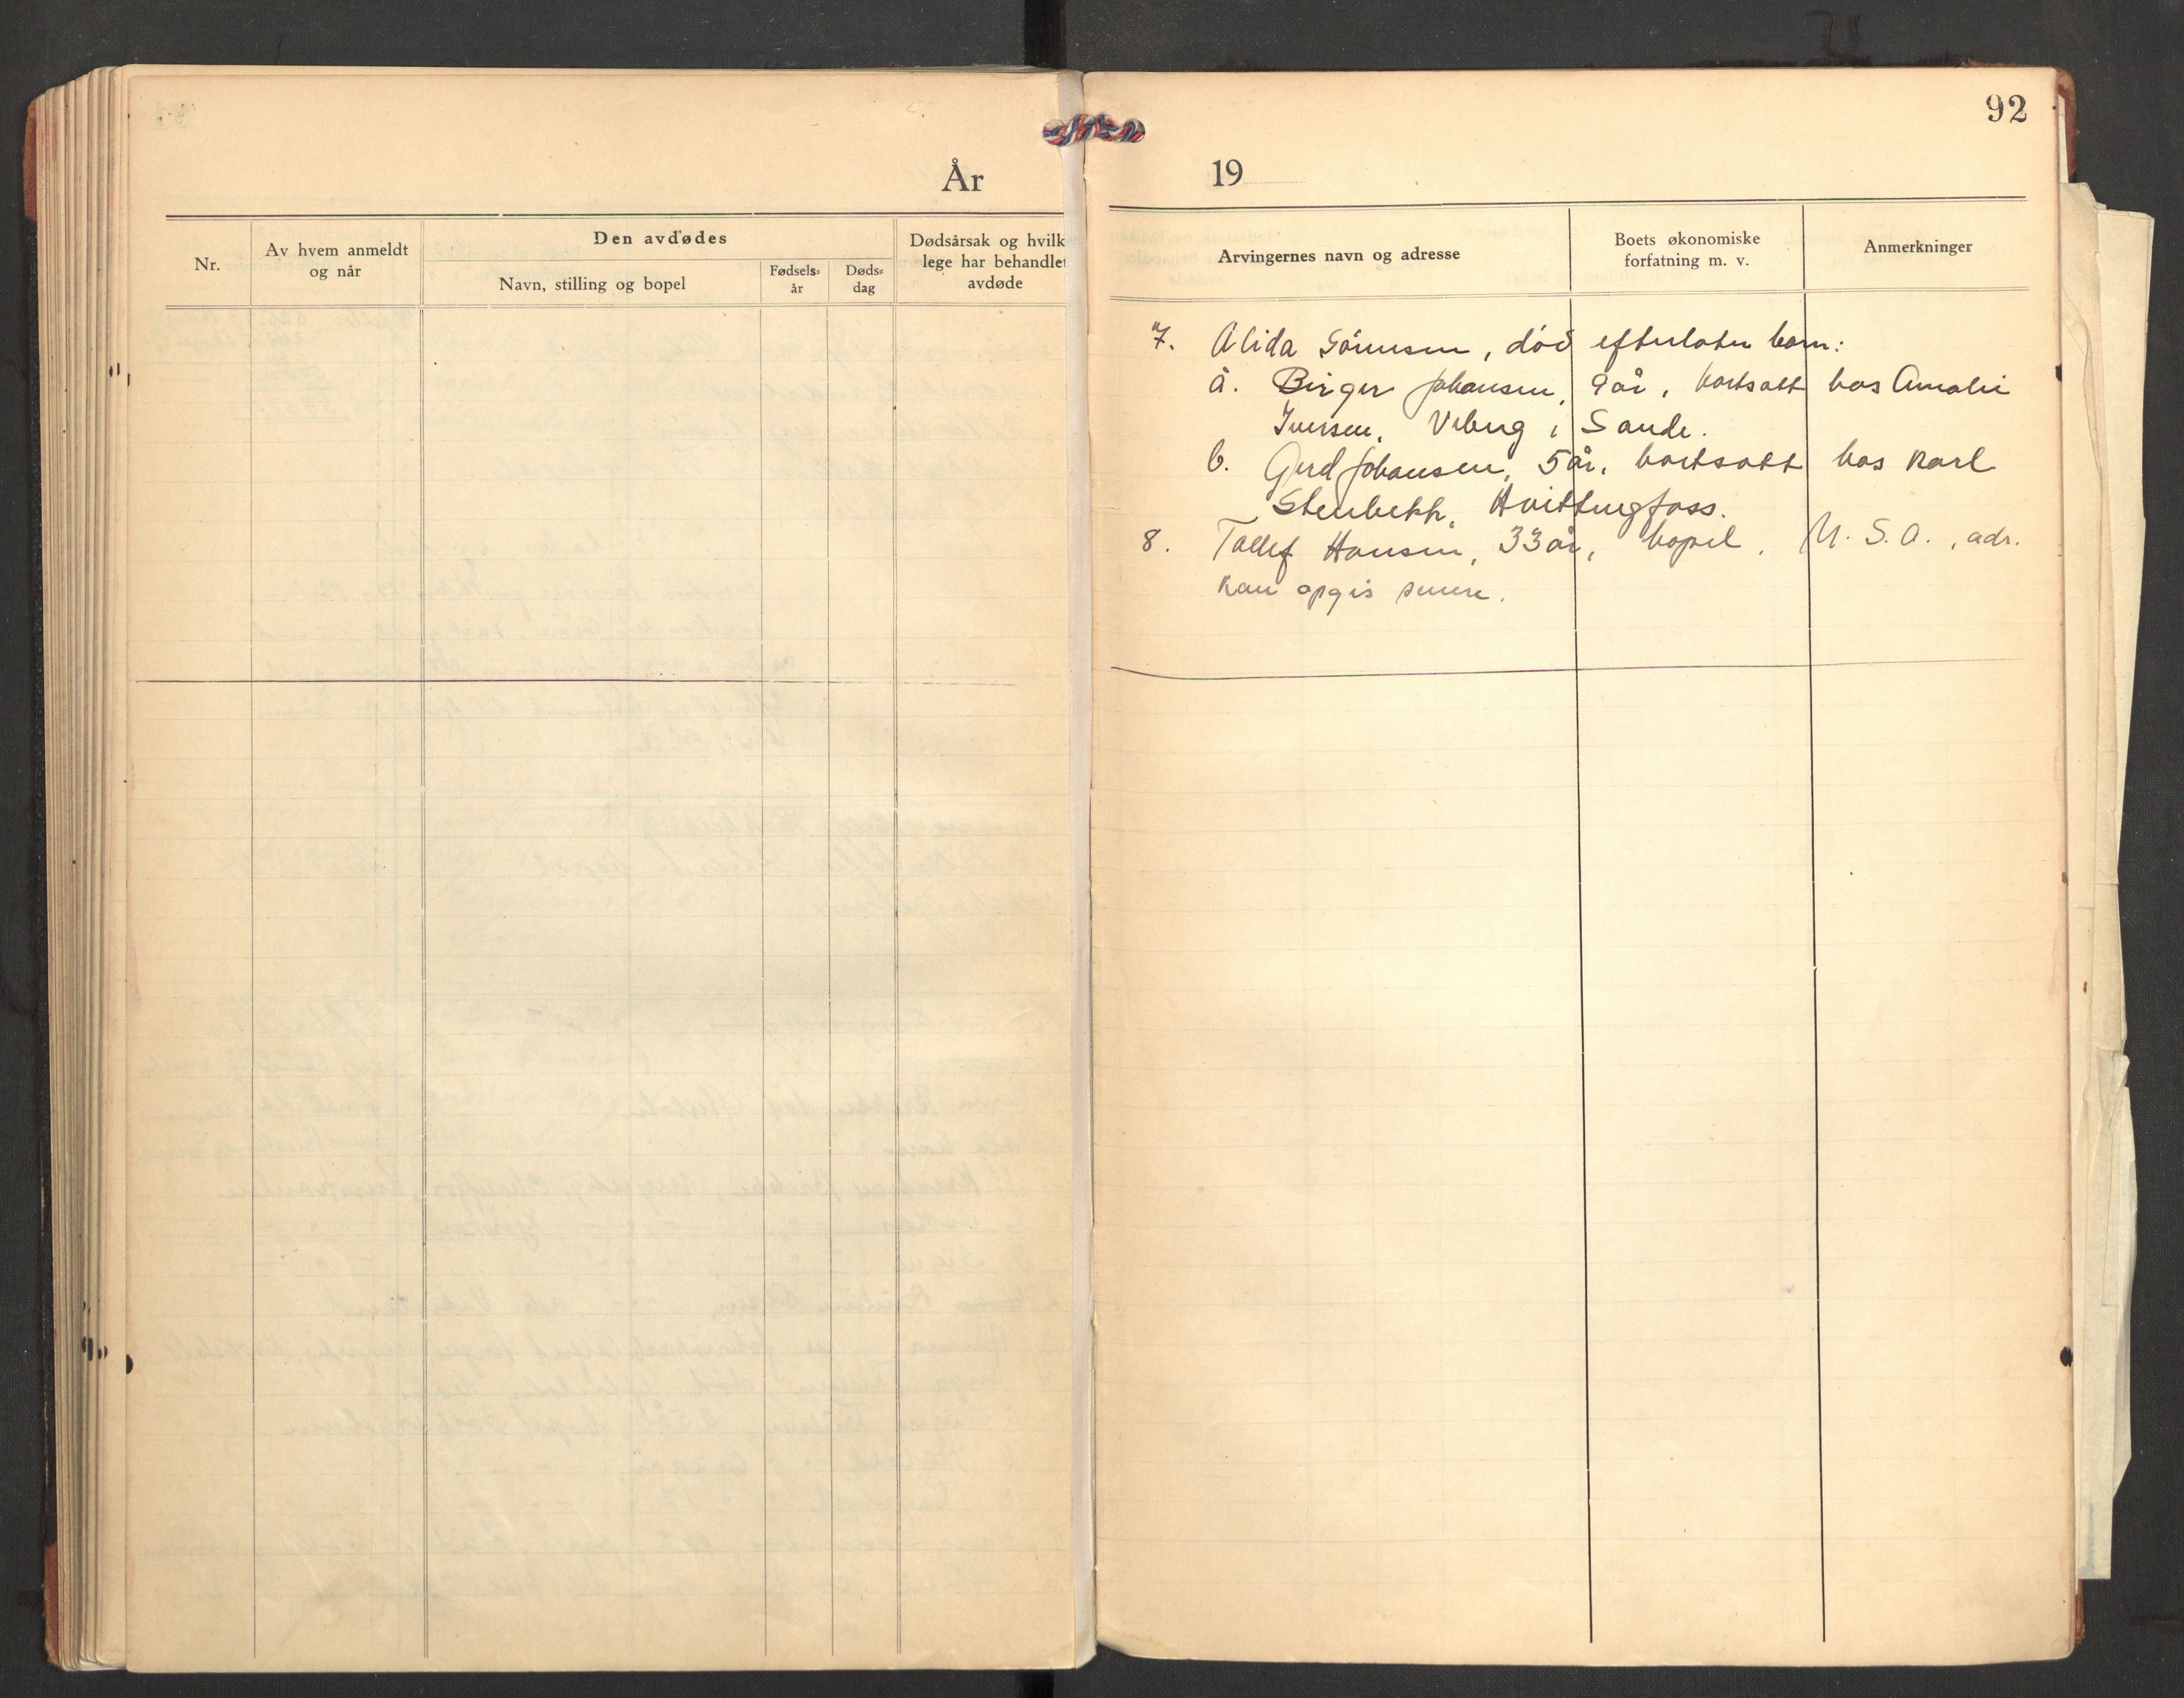 92
År 19
Nr.
Av hvem anmeldt
og når
Den avdødes
Navn, stilling og bopel
Fødsels-
år
Døds-
dag
Dødsårsak og hvilk
lege har behandlet
avdøde
Arvingernes navn og adresse
Boets økonomiske
forfatning m. v.
Anmerkninger
7. Alida Sørensen, død efterlater barn:
a. Birger Johansen, 9 år, bortsatt hos Amalie
Iversen, i Sande.
b. Gerd Johansen, 5 år, bortsatt hos Karl
Stenbekk, Hvittingfoss.
8. Tollef Hansen, 33 år, bopel, U. S. A., adr.
kan opgis senere.